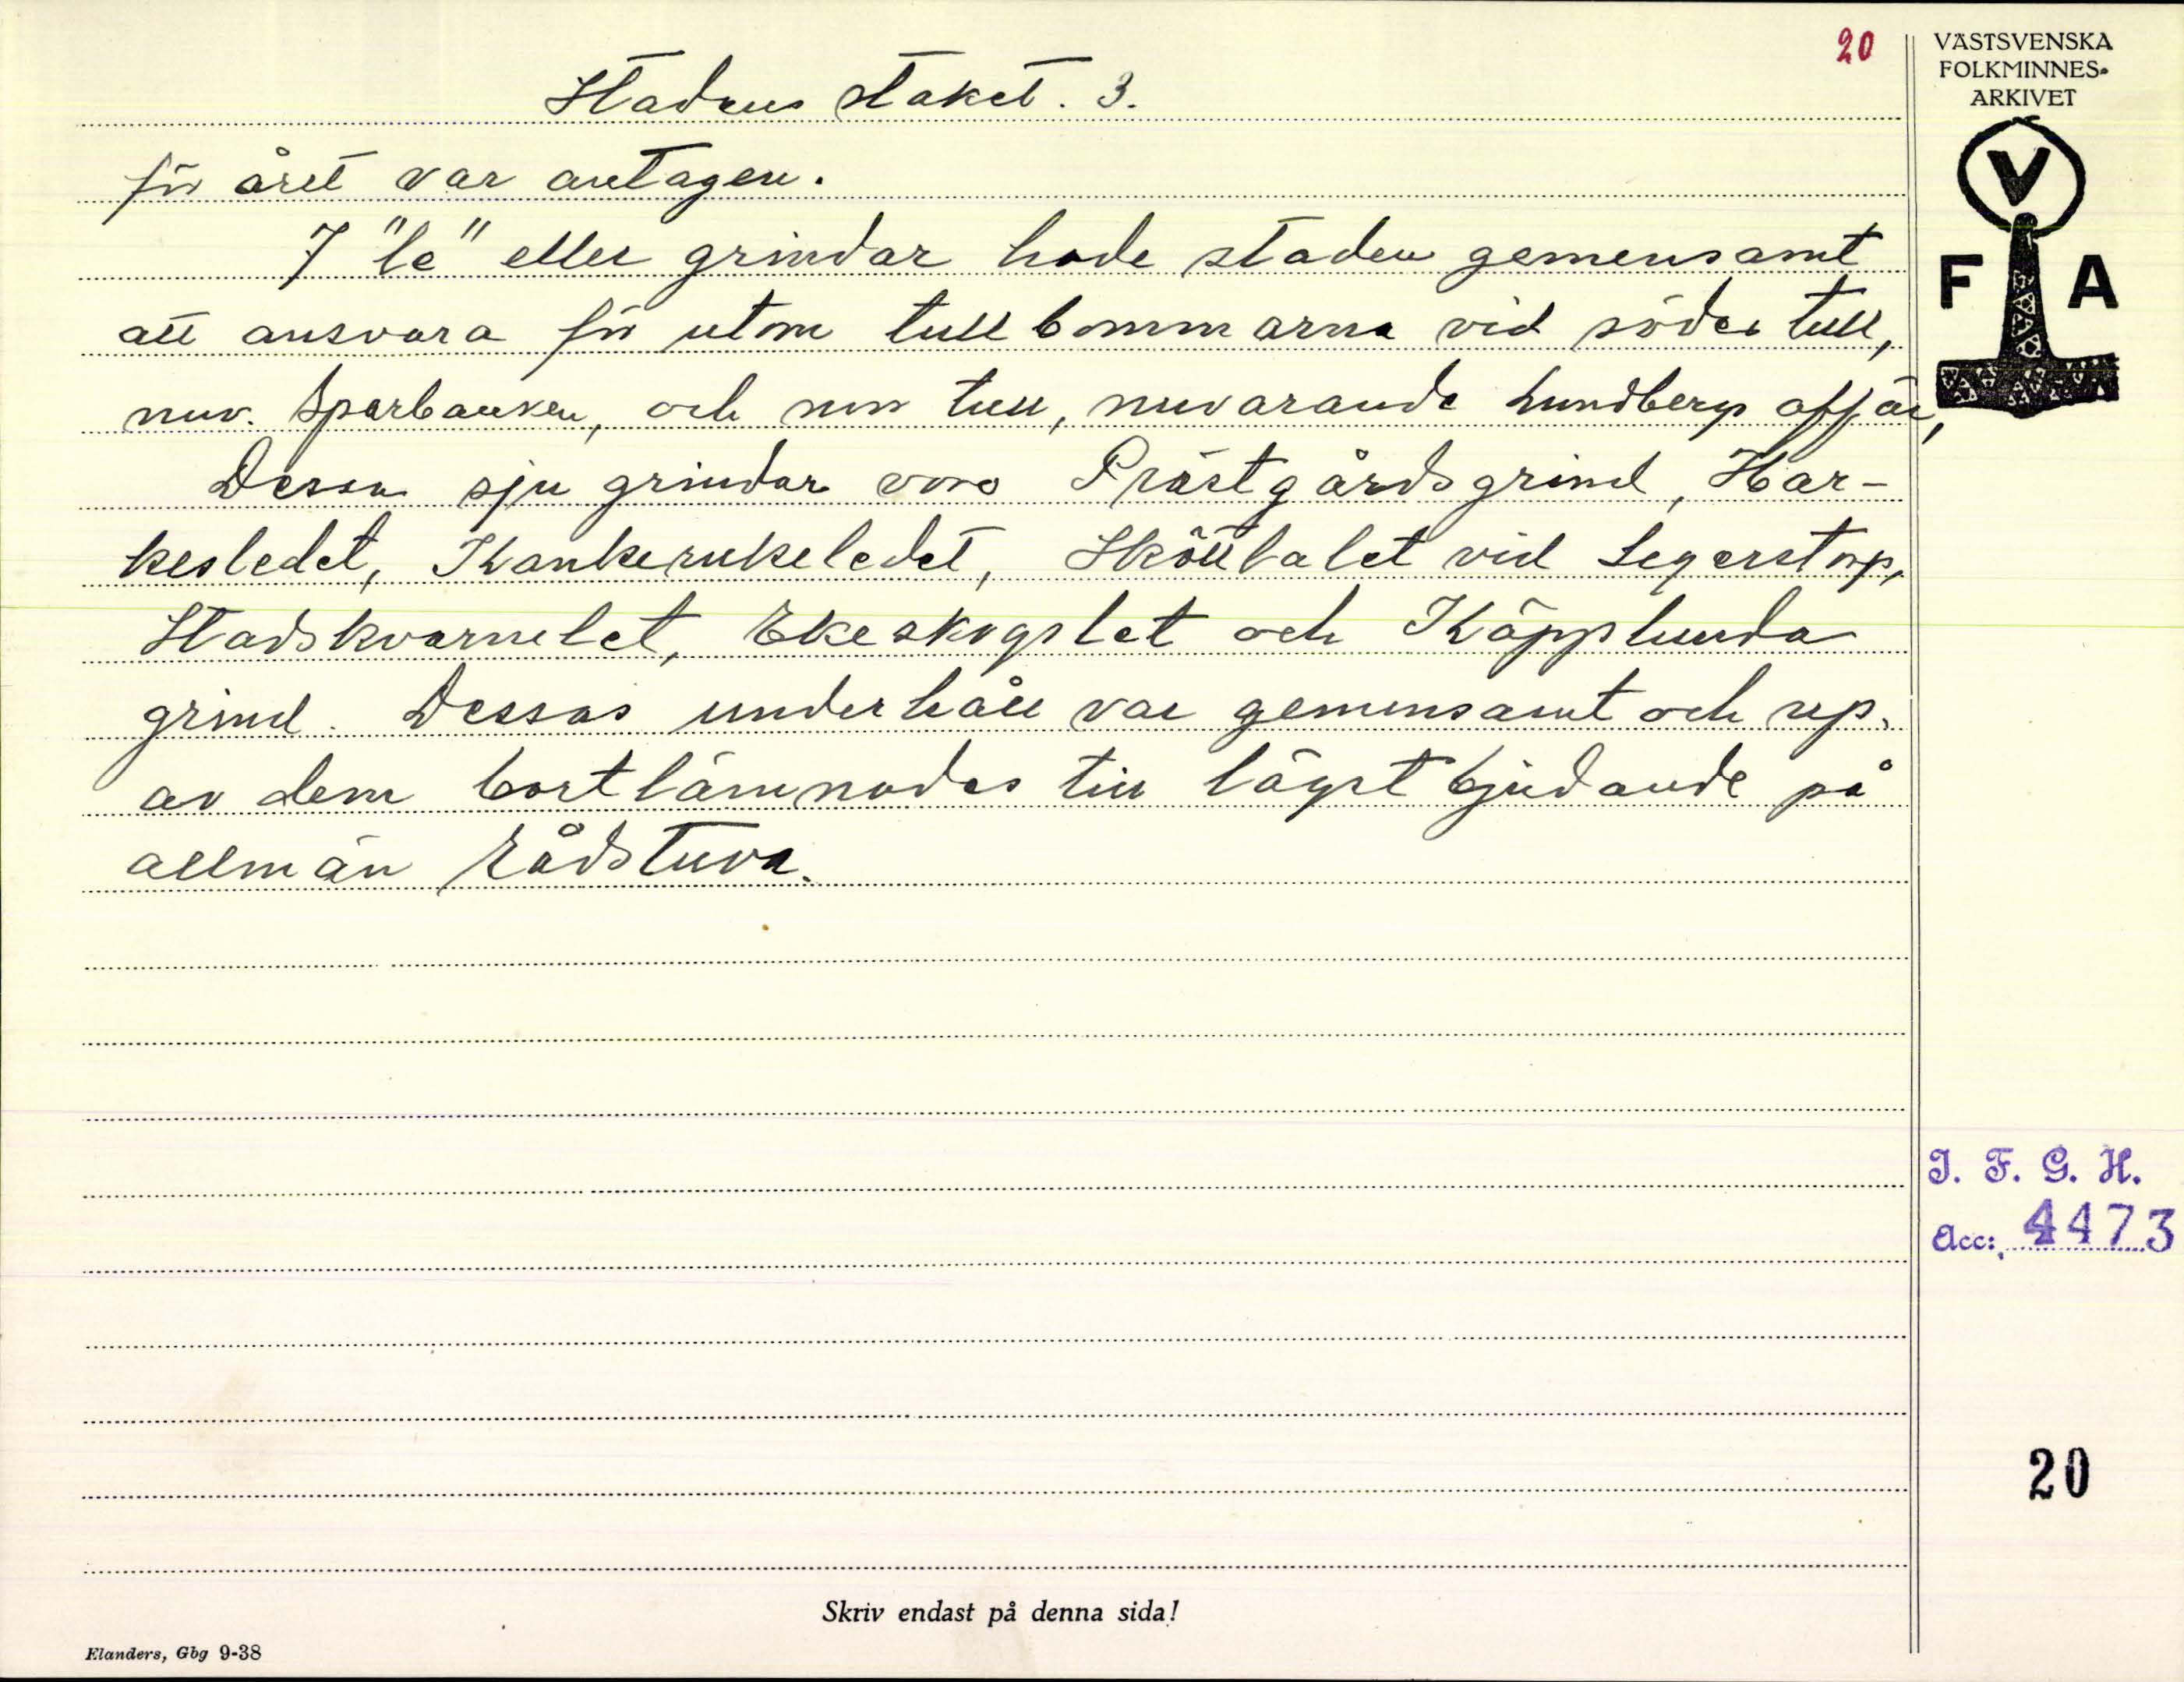 20
Stadens staket. 3.
för året var antagen.
7 "le" eller grindar hade staden gemensamt
att ansvara för utom tullbommarna vid söder tull,
nuv. Sparbanken, och norr tull, nuvarande Lundbergs affär,
Dessa sju grindar voro Prästgårdsgrind, Har-
kesledet, Kankerukeledet, Sköttbalet vid Segerstorp,
Stadskvarnelet, Ekeskogslet och Käpplunda
grind. Dessas underhåll var gemensamt och rep.
av dem bortlämnades till lägst bjudande på
allmän Rådstuva.
VÄSTSVENSKA
FOLKMINNES-
ARKIVET
V
F A
I. F. G. H.
Acc: 4473
20
Skriv endast på denna sida!
Elanders, Gbg 9-38